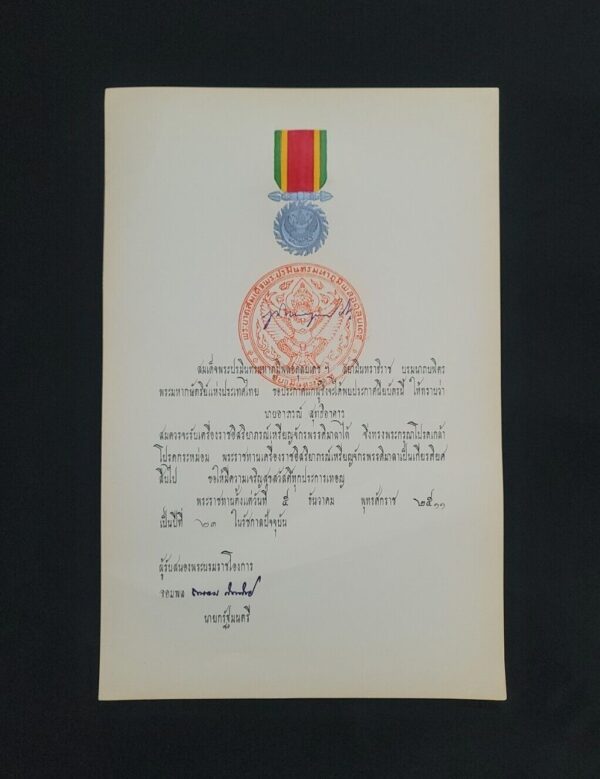 พระบาทสมเด็จพระปรมินทรมหาภูมิพลอดุลยเดช
สมเด็จพระปรมินทรมหาภูมิพลอดุลยเดช ฯ สยามินทราธิราช บรมนาถบพิตร
พระมหากษัตริย์แห่งประเทศไทย ขอประกาศแก่ผู้ซึ่งจะได้พบประกาศนียบัตรนี้ ให้ทราบว่า
นายอาภรณ์ สุทธิอาคาร
สมควรจะรับเครื่องราชอิสริยาภรณ์เหรียญจักรพรรดิมาลาได้ จึงทรงพระกรุณาโปรดเกล้า
โปรดกระหม่อม พระราชทานเครื่องราชอิสริยาภรณ์เหรียญจักรพรรดิมาลาเป็นเกียรติยศ
สืบไป ขอให้มีความเจริญสุขสวัสดิ์ทุกประการเทอญ
พระราชทานตั้งแต่วันที่ ๕ ธันวาคม พุทธศักราช ๒๕๑๑
เป็นปีที่ ๒๓ ในรัชกาลปัจจุบัน
ผู้รับสนองพระบรมราชโองการ
จอมพล
นายกรัฐมนตรี